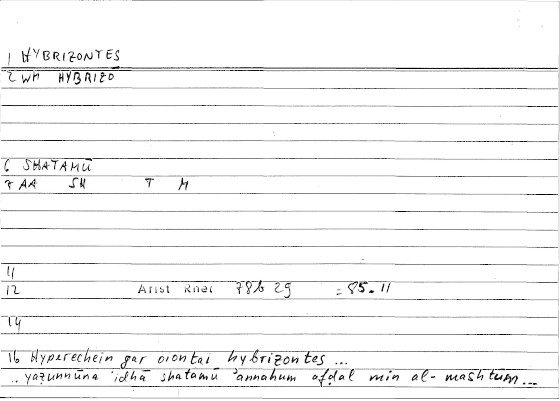 1 HYBRIZONTES
2 WM HYBRIZO
6 SHATAMŪ
8 AA SH T M
11
12 Arist Rhet 78b 29 = 85.11
14
16 Hyperechein gar oiontai hybrizontes ...
.. yaẓunnūna 'idhā shatamū 'annahum afdal min al-mashtūm...